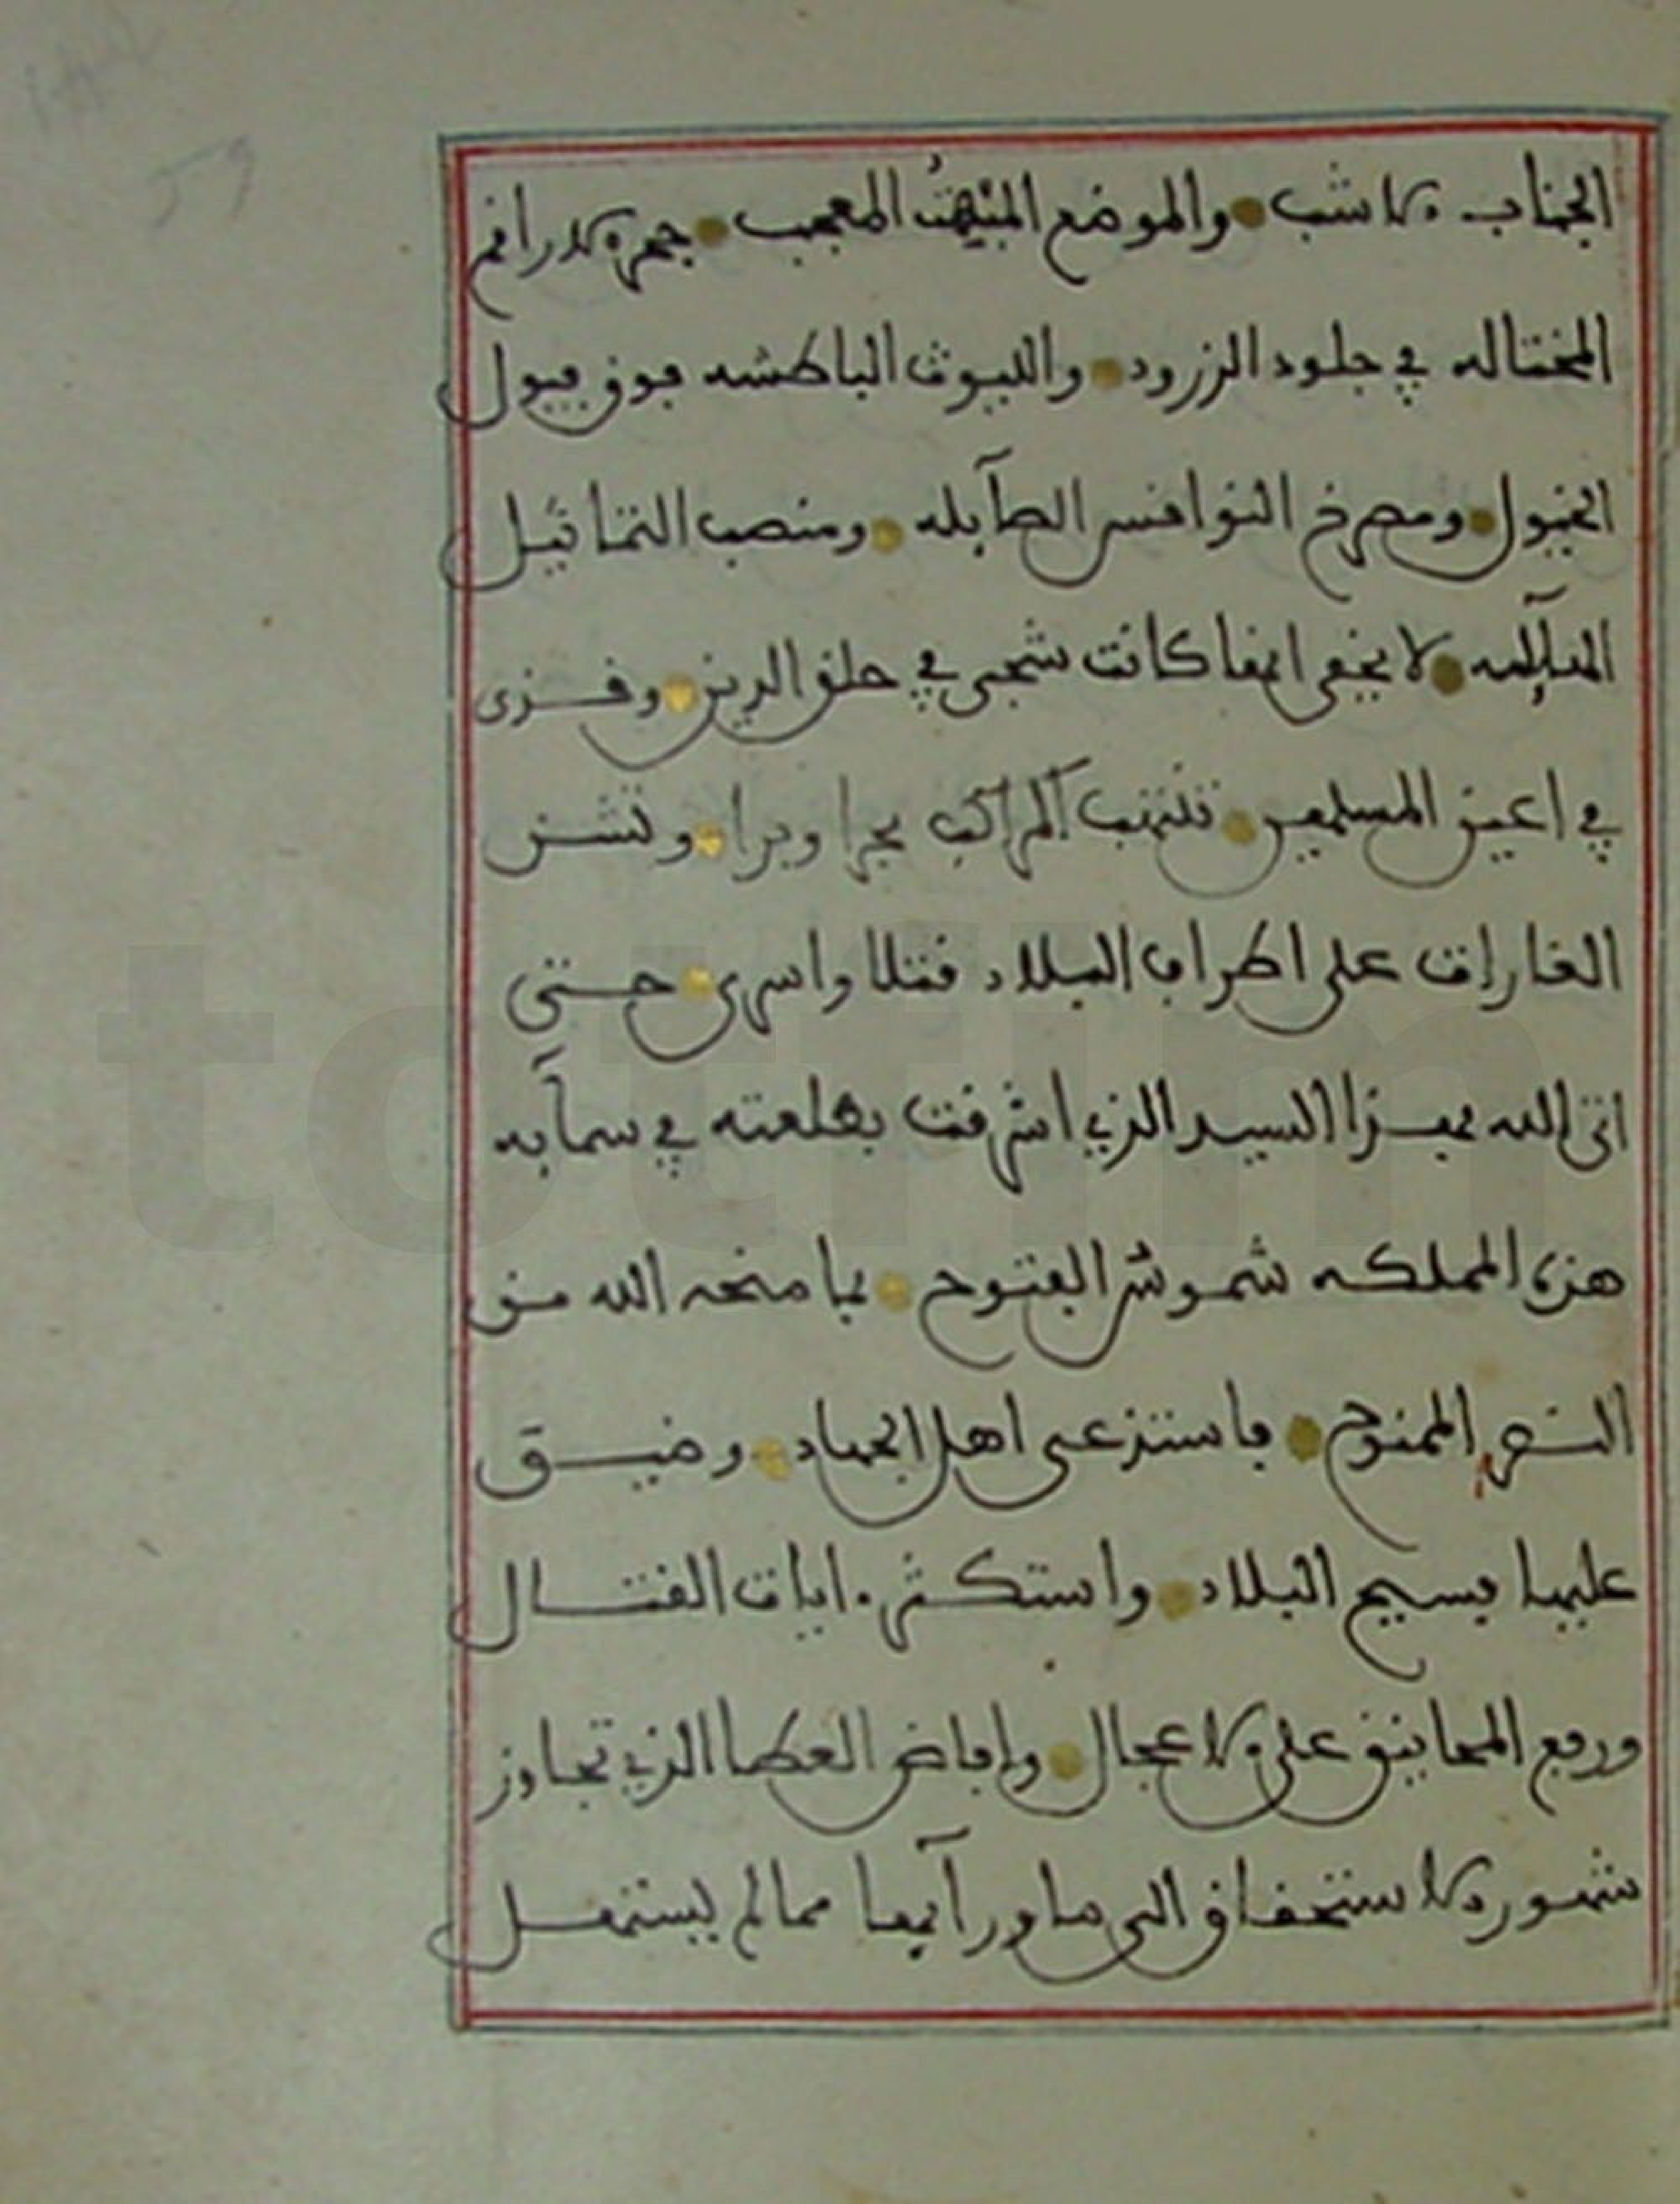 الجناب الاشب والموضع المبهت المعجب جحر الاراقم
المختاله في جلود الزرود والليوث الباطشه فوق فيول
الخيول ومصرخ النواقس الصآيله ومنصب التماثيل
لا يخفى انها كانت شجى في حلق الدين وقذى
في اعين المسلمين تنتهب المراكب بحرا وبرا وتشن
الغارات على اطراف البلاد قتلا واسرى حتى
اتى الله بهذا السيد الذي اشرقت بطلعته في سمآيه
هذه المملكه شموس الفتوح بما منحه الله من
النصر الممنوح فاستدعى اهل الجهاد وضيق
عليها فسيح البلاد واستكثر الات القتال
ورفع المجانيق على الاعجال وافاض العطا الذي تجاوز
شهور الاستحقاق الى ما ورآيها مما لم يستهل